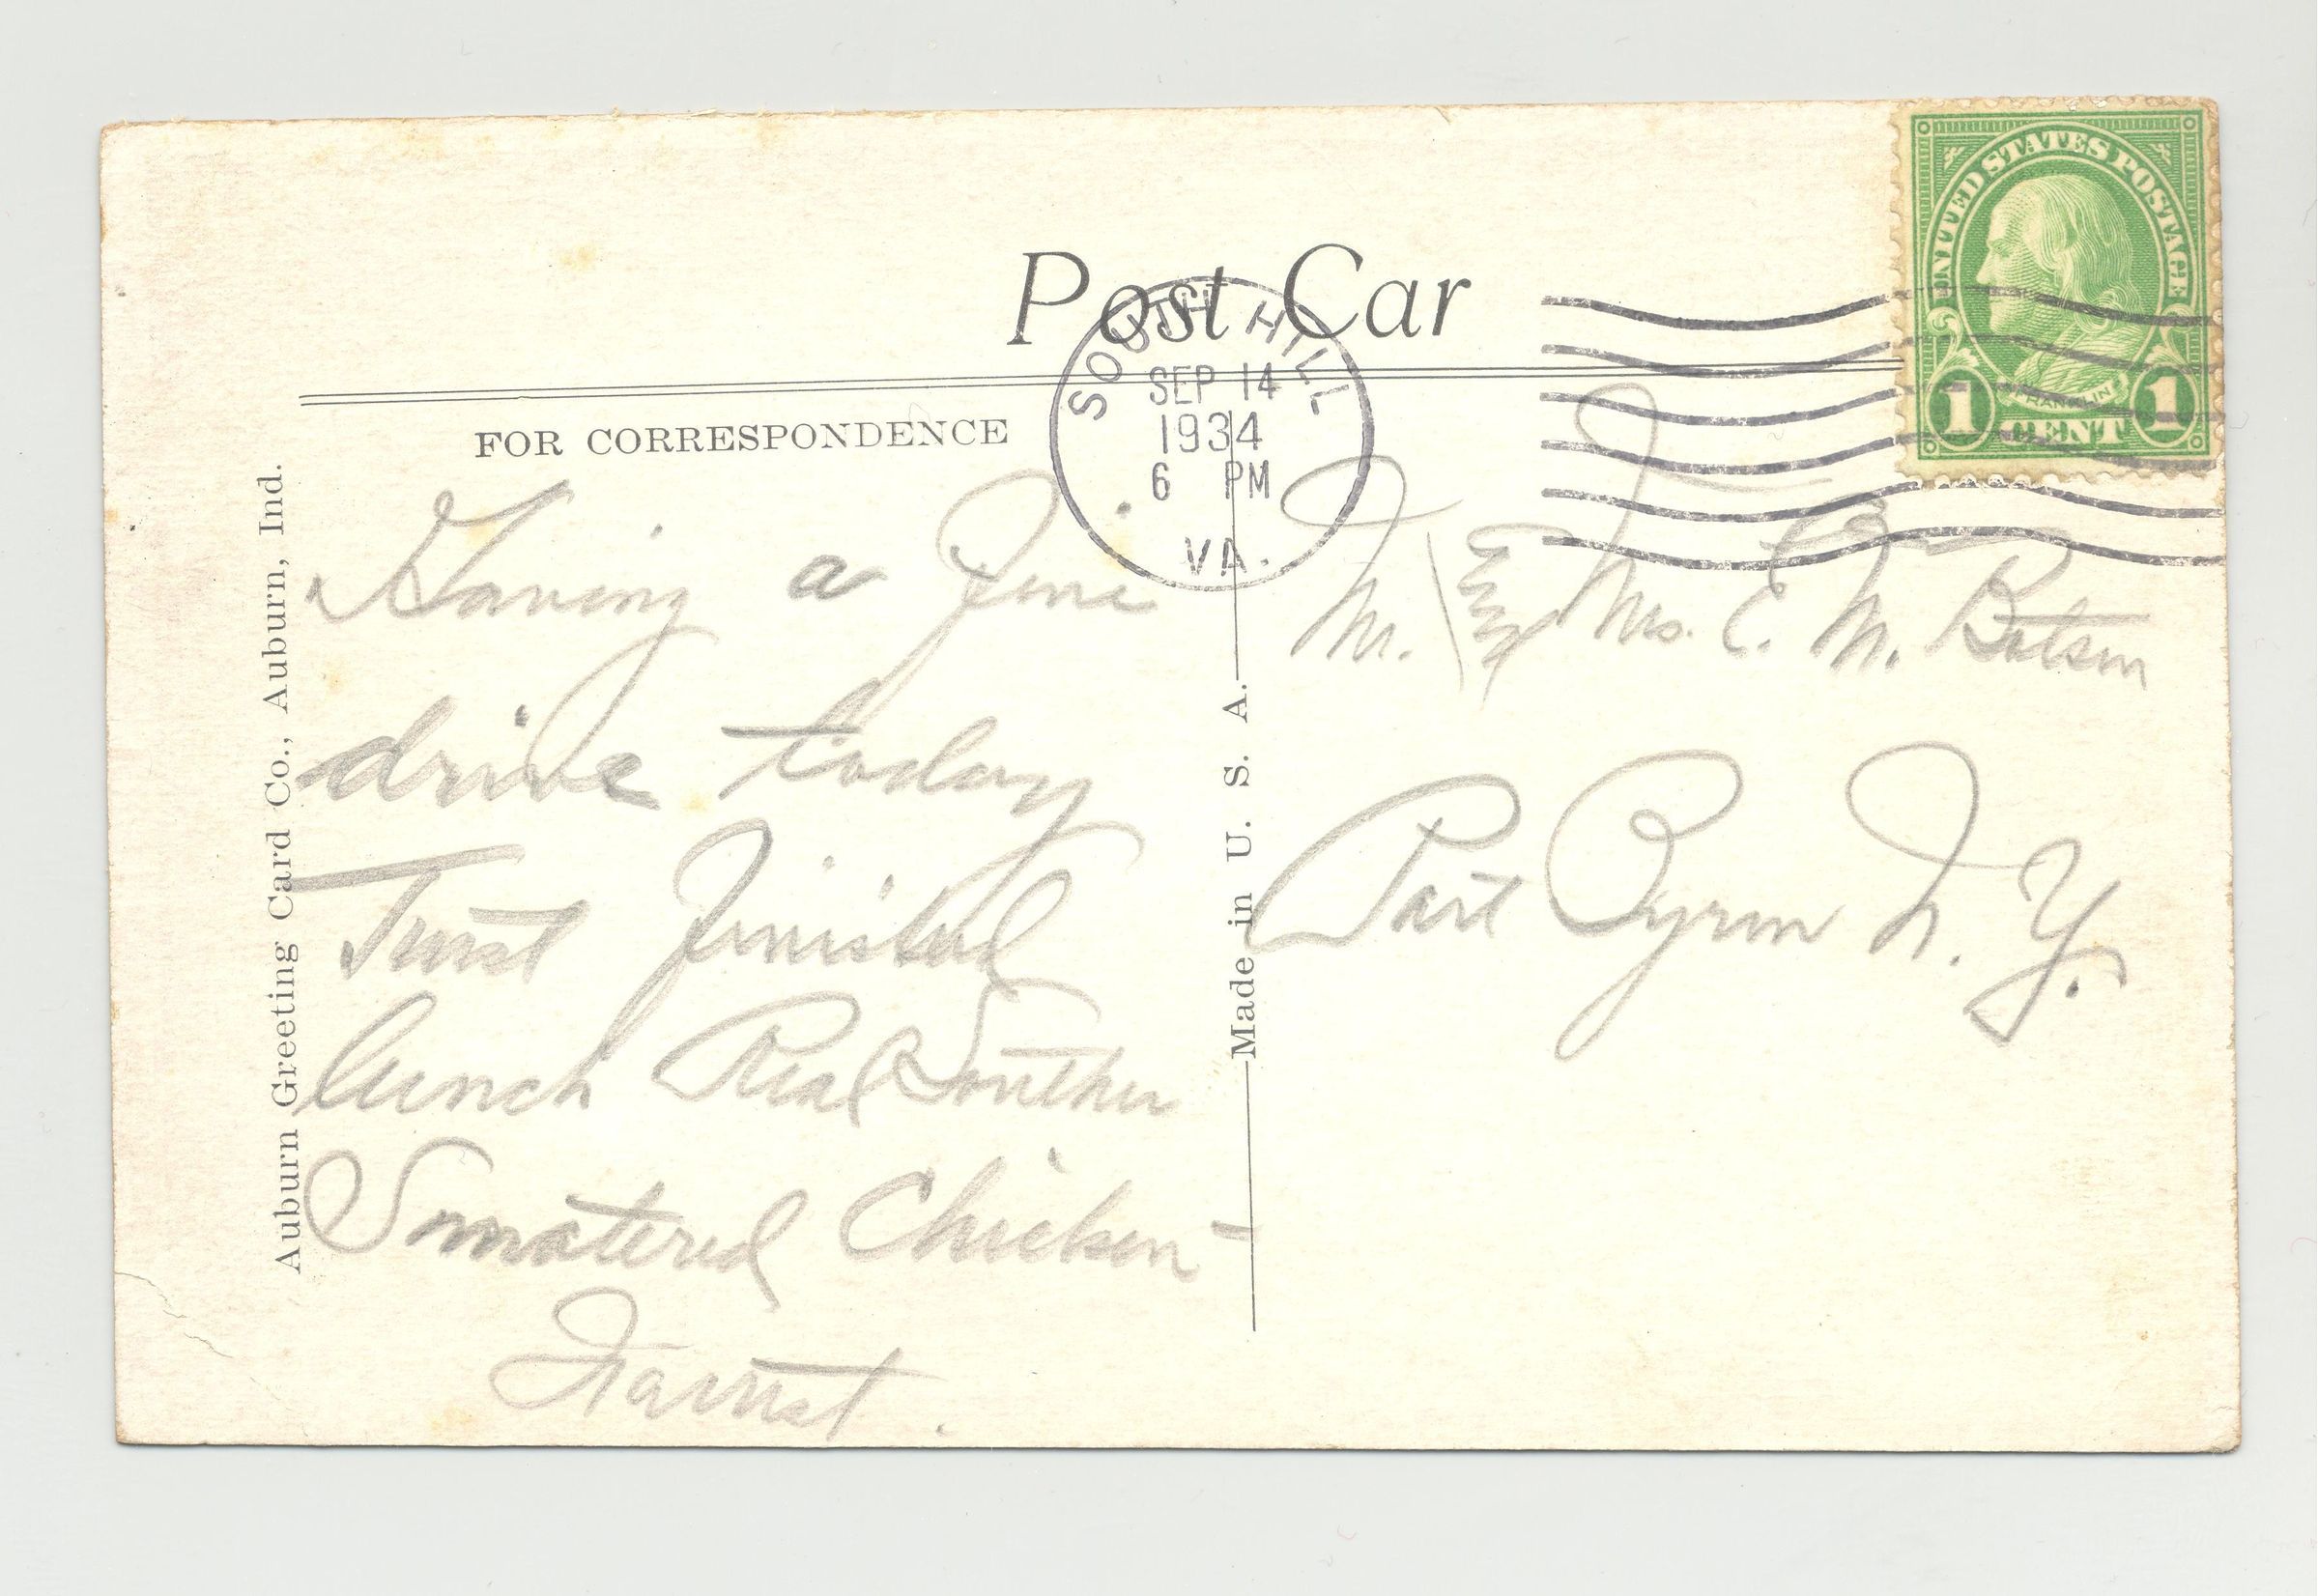 Post Car
SOUTH HILL
SEP 14
1934
6 PM
VA.
UNITED STATES POSTAGE
FRANKLIN
1 CENT 1
FOR CORRESPONDENCE
Auburn Greeting Card Co., Auburn, Ind.
Made in U. S. A.
Having a fine
drive today
Just finished
lunch Real Southern
Smothered Chicken-
Mr. & Mrs. E. M. Batsen
Port Byron N. Y.